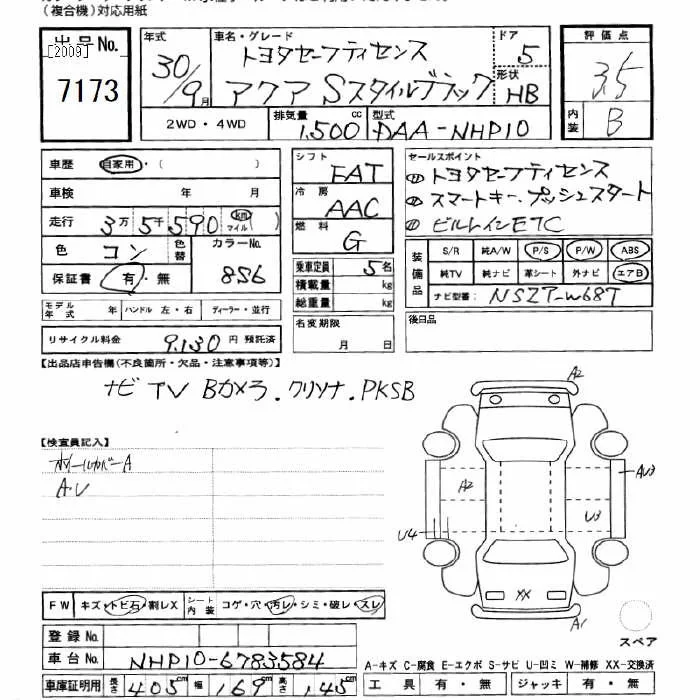 （複合機）対応用紙
出品No.
[2009]
7173
年式
30/9月
車名・グレード
トヨタセーフティセンス
アクア Sスタイルブラック
ドア
5
形状
HB
評価点
3.5
内装
B
2WD・4WD
排気量
1,500 cc
型式
DAA-NHP10
車歴 自家用・（ ）
車検 年 月
走行 3万5千590 km マイル ( )
色 コン 色替 カラーNo.
856
保証書 有・無
モデル年式 年 ハンドル 左・右 ディーラー・並行
リサイクル料金 9,130 円 預託済
シフト
FAT
冷房
AAC
燃料
G
乗車定員 5名
積載量 kg
総重量 kg
名変期限
月 日
セールスポイント
トヨタセーフティセンス
スマートキー、プッシュスタート
ビルトインETC
装備品
S/R 純A/W P/S P/W ABS
純TV 純ナビ 革シート 外ナビ エアB
ナビ型番: NSZT-W68T
後日品
【出品店申告欄(不良箇所・欠品・注意事項等)】
ナビ TV Bカメラ、クリソナ、PKSB
【検査員記入】
ホイールカバーA
A.U
A2
AU3
A2
U3
U4
XX
A1
スペア
FW キズ・トビ石・割レX シート内装 コゲ・穴・汚レ・シミ・破レ・スレ
登録No.
車台No. NHP10-6783584
車庫証明用 長さ 405cm 幅 169cm 高さ 145cm
A-キズ C-腐食 E-エクボ S-サビ U-凹ミ W-補修 XX-交換済
工具 有・無 ジャッキ 有・無